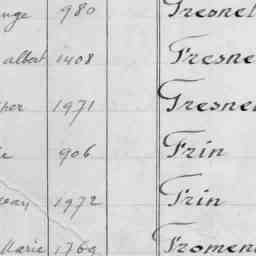 ange 980 Fresnel
albert 1408 Fresne
1971 Fresne
906 Frin
jean 1972 Frin
Marie 1769 Fromen